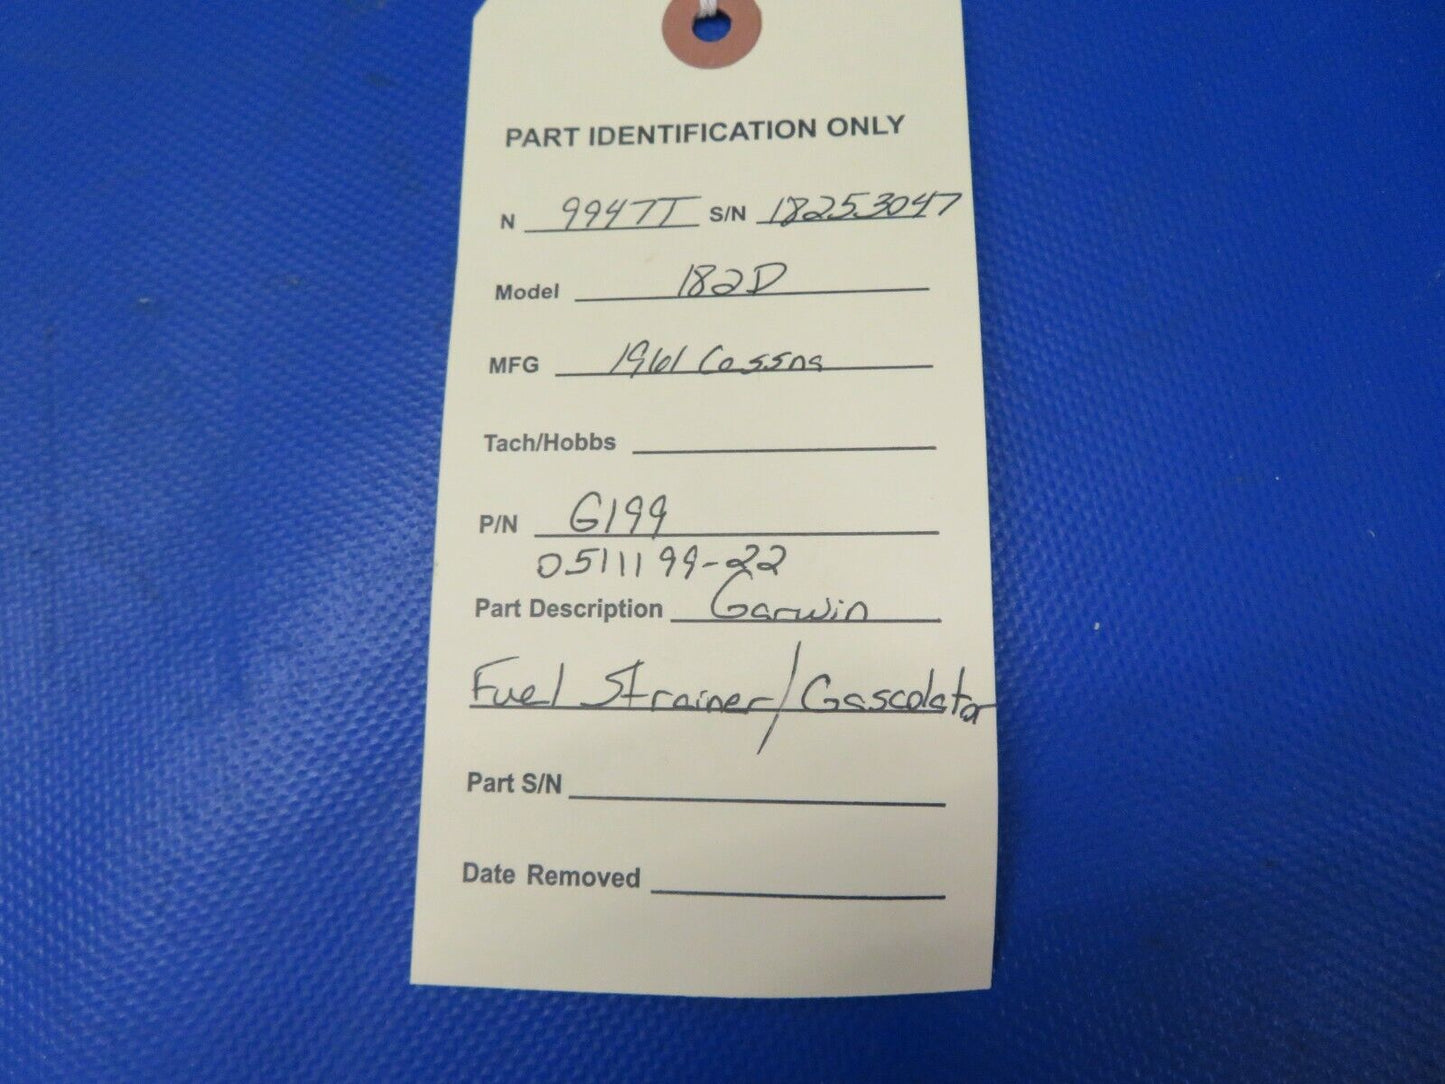 PART IDENTIFICATION ONLY
N 9947T S/N 18253047
Model 182D
MFG 1961 Cessna
Tach/Hobbs
P/N G199
0511199-22
Part Description Garwin
Fuel Strainer/Gascolator
Part S/N
Date Removed